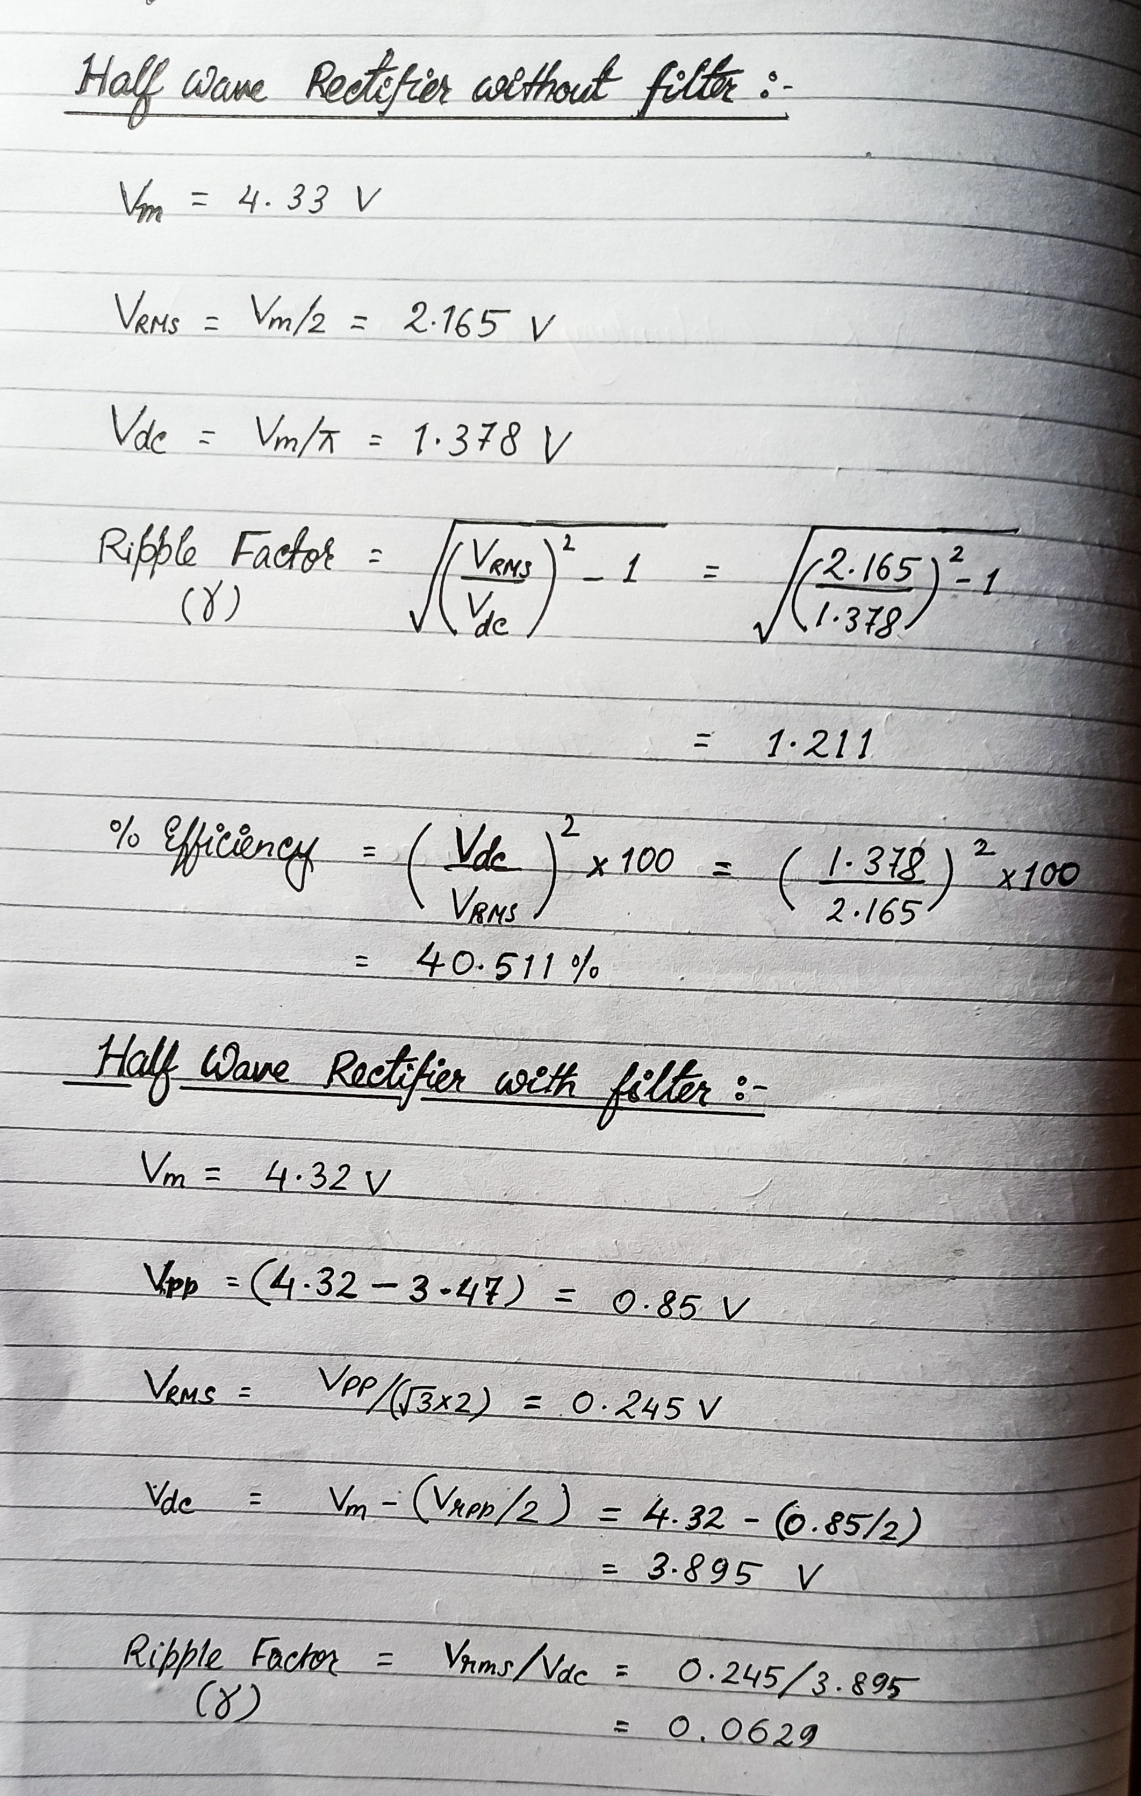 Half Wave Rectifier without filter :-
Vm = 4.33 V
VRMS = Vm/2 = 2.165 V
Vdc = Vm/π = 1.378 V
Ripple Factor (γ) = √((VRMS/Vdc)² - 1) = √((2.165/1.378)² - 1)
= 1.211
% Efficiency = (Vdc/VRMS)² x 100 = (1.378/2.165)² x 100
= 40.511 %
Half Wave Rectifier with filter :-
Vm = 4.32 V
Vpp = (4.32 - 3.47) = 0.85 V
VRMS = VPP/(√3x2) = 0.245 V
Vdc = Vm - (Vrpp/2) = 4.32 - (0.85/2)
= 3.895 V
Ripple Factor (γ) = Vrms/Vdc = 0.245/3.895
= 0.0629